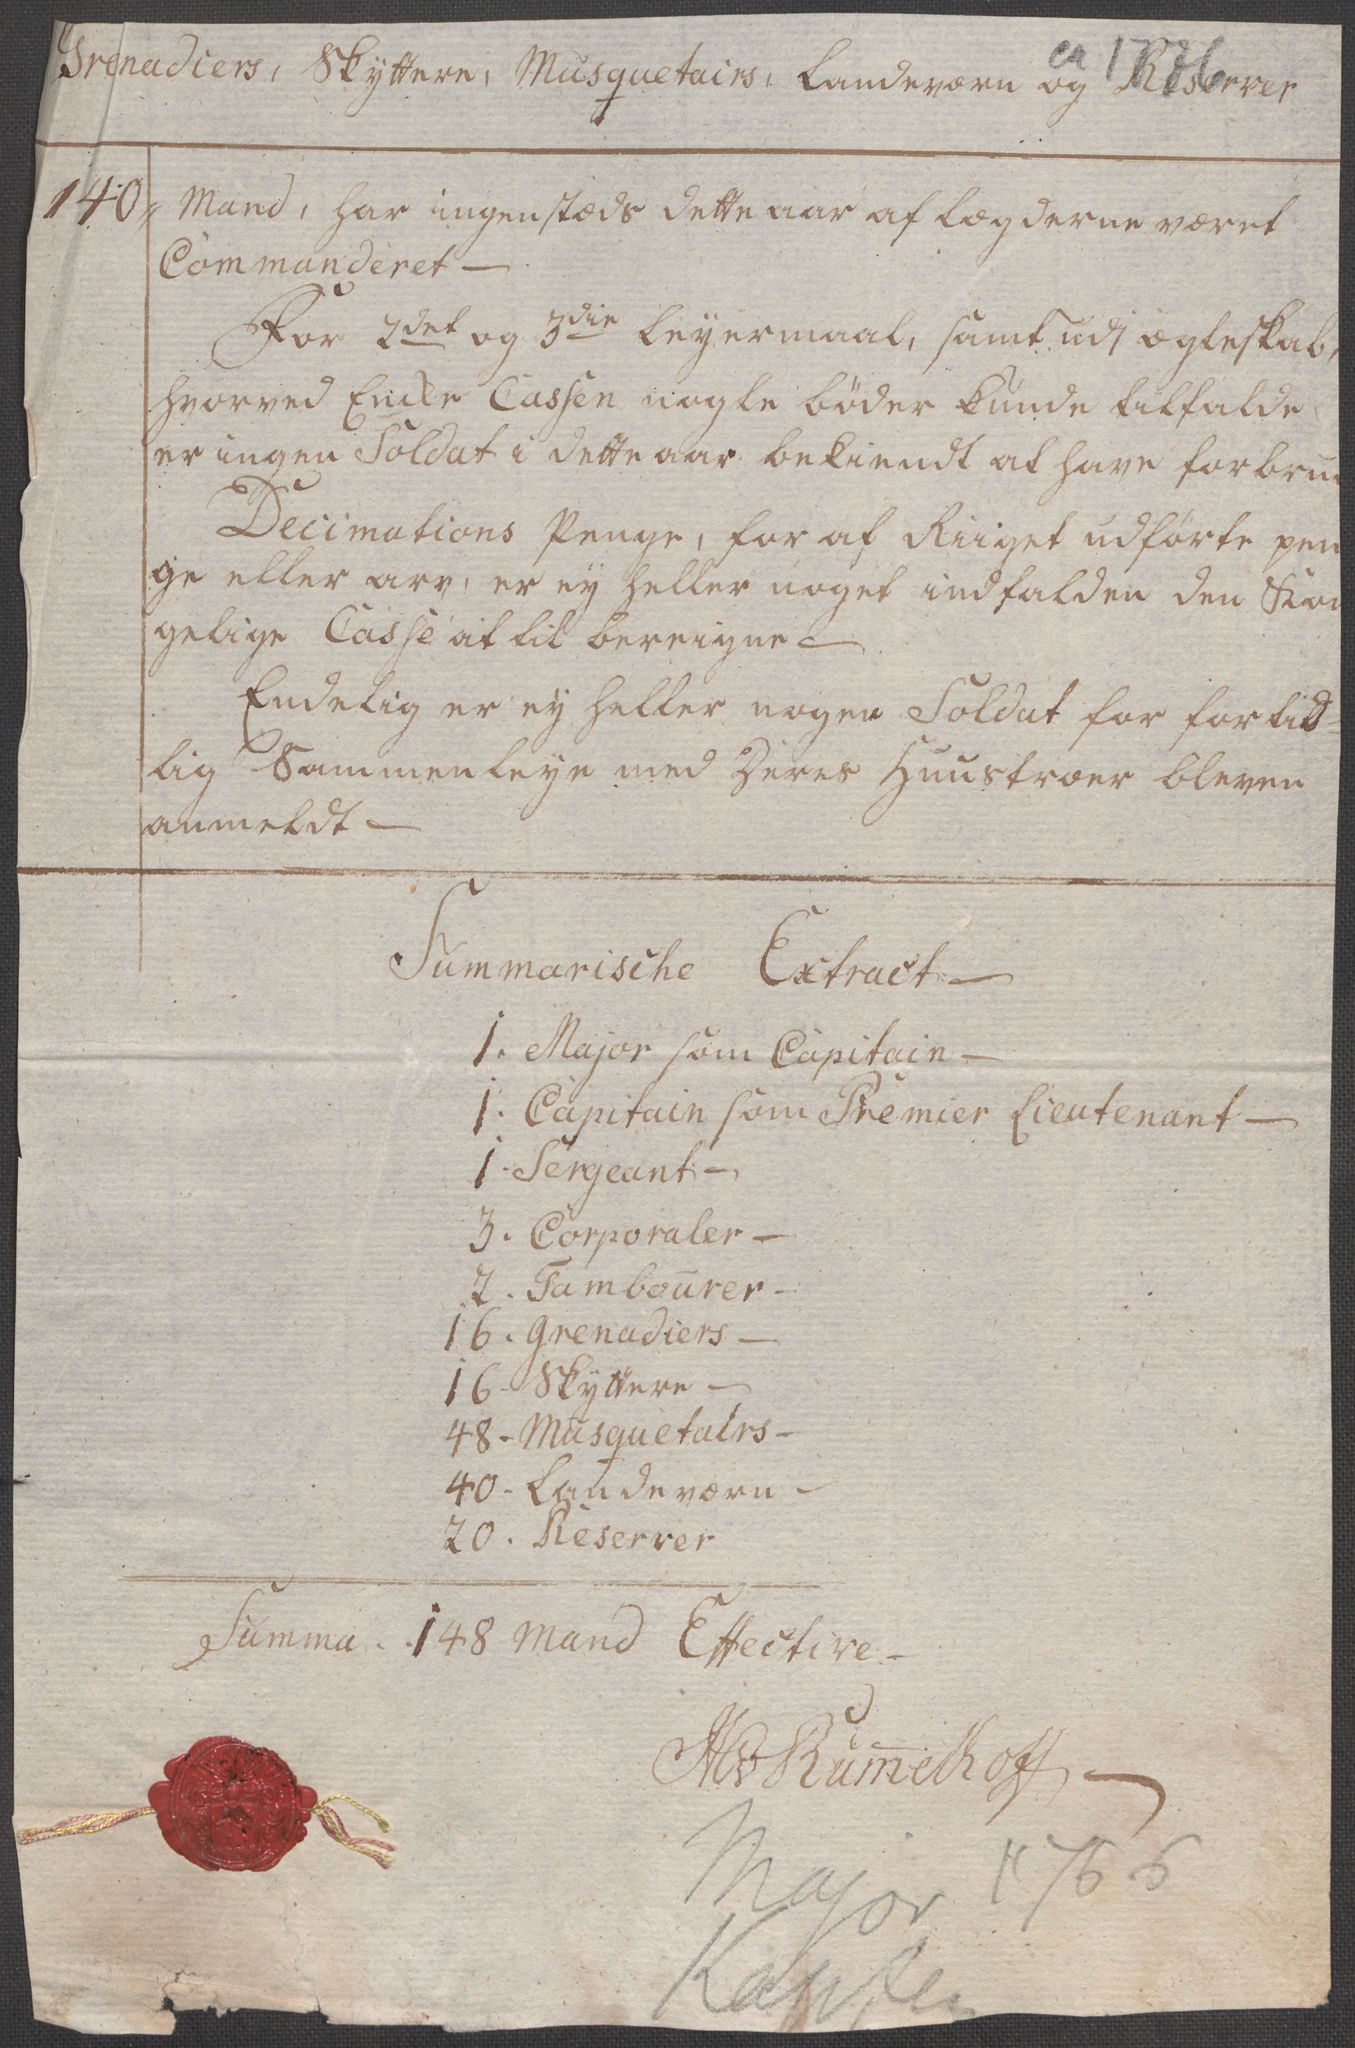 Grenadiers, Skyttere, Musquetairs, Landeværn og Reserver
ca 1776
140 Mand, har ingenstæds dette aar af Lægderne været
Commanderet —
For 2det og 3die Leyermaal, samt udj ægteskab,
hvorved Encke Cassen nogle bøder kunde tilfalde,
er ingen Soldat i dette aar bekiendt at have forbrud
Decimations Penge, for af Riiget udførte pen
ge eller arv, er ey heller noget indfalden den Kon
gelige Casse at til bereigne —
Endelig er ey heller nogen Soldat for fortid=
lig Sammenleye med Deres Huustroer bleven
anmeldt —
Summarische Extract —
1. Major som Capitain —
1. Capitain som Premier Lieutenant —
1. Sergeant —
3. Corporaler —
2. Tambourer —
16. Grenadiers —
16 - Skyttere —
48 - Musquetairs -
40 - Landeværn -
20. Reserver
Summa . . 148 Mand Effective -
Rummelhoff
Major 1766